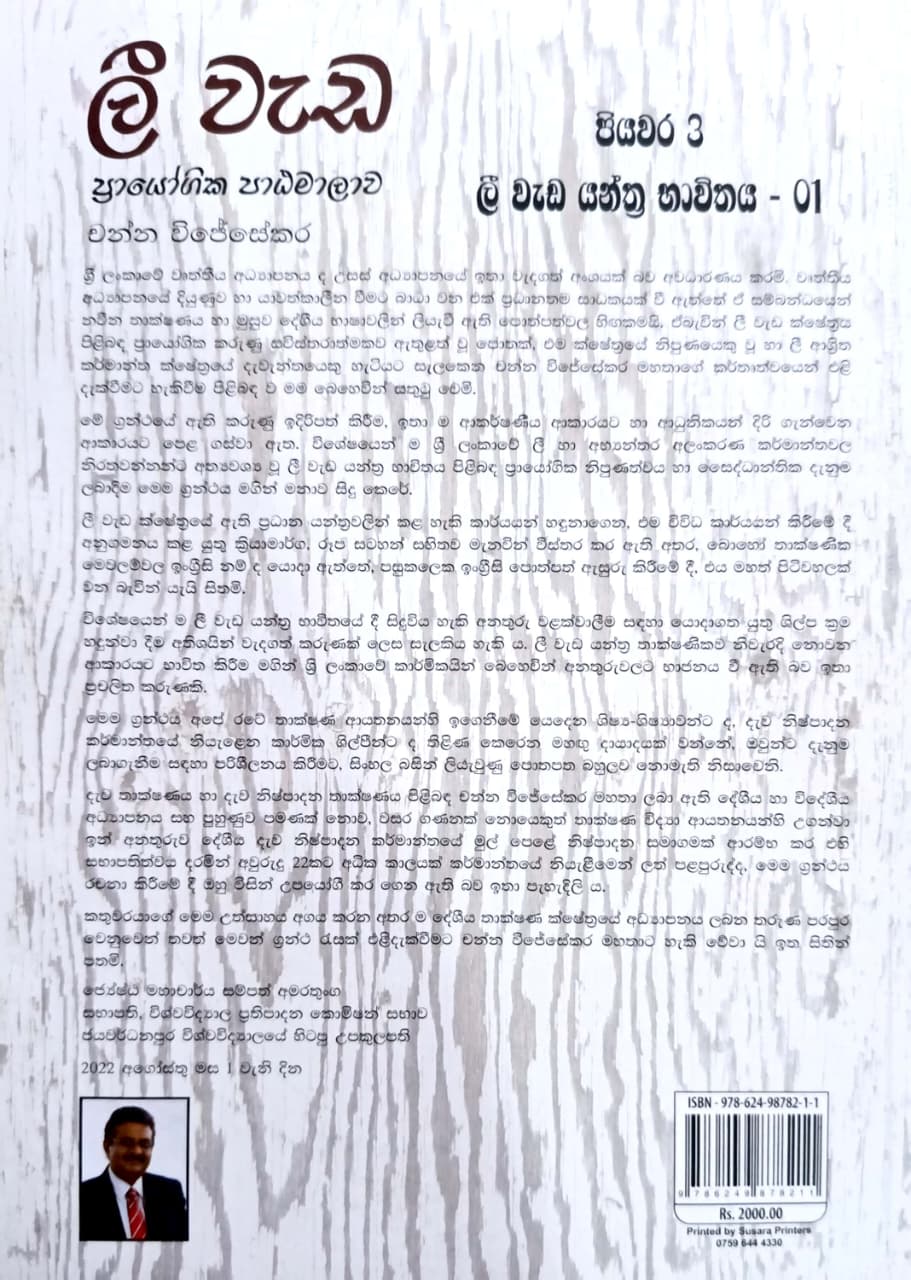 ලී වැඩ
ප්‍රායෝගික පාඨමාලාව
චන්න විජේසේකර
පියවර 3
ලී වැඩ යන්ත්‍ර භාවිතය - 01
ශ්‍රී ලංකාවේ වෘත්තීය අධ්‍යාපනය ද උසස් අධ්‍යාපනයේ ඉතා වැදගත් අංශයක් බව අවධාරණය කරමි. වෘත්තීය
අධ්‍යාපනයේ දියුණුව හා යාවත්කාලීන වීමට බාධා වන එක් ප්‍රධානතම සාධකයක් වී ඇත්තේ ඒ සම්බන්ධයෙන්
නවීන තාක්ෂණය හා මුසුව දේශීය භාෂාවලින් ලියැවී ඇති පොත්පත්වල හිඟකමයි, ඒබැවින් ලී වැඩ ක්ෂේත්‍රය
පිළිබඳ ප්‍රායෝගික කරුණු සවිස්තරාත්මකව ඇතුළත් වූ පොතක්, එම ක්ෂේත්‍රයේ නිපුණයෙකු වූ හා ලී ආශ්‍රිත
කර්මාන්ත ක්ෂේත්‍රයේ දැවැන්තයෙකු හැටියට සැලකෙන චන්න විජේසේකර මහතාගේ කර්තෘත්වයෙන් එළි
දැක්වීමට හැකිවීම පිළිබඳ ව මම බෙහෙවින් සතුටු වෙමි.
මේ ග්‍රන්ථයේ ඇති කරුණු ඉදිරිපත් කිරීම, ඉතා ම ආකර්ෂණීය ආකාරයට හා ආධුනිකයන් දිරි ගැන්වෙන
ආකාරයට පෙළ ගස්වා ඇත. විශේෂයෙන් ම ශ්‍රී ලංකාවේ ලී හා අභ්‍යන්තර අලංකරණ කර්මාන්තවල
නිරතවන්නන්ට අත්‍යවශ්‍ය වූ ලී වැඩ යන්ත්‍ර භාවිතය පිළිබඳ ප්‍රායෝගික නිපුණත්වය හා සෛද්ධාන්තික දැනුම
ලබාදීම මෙම ග්‍රන්ථය මගින් මනාව සිදු කෙරේ.
ලී වැඩ ක්ෂේත්‍රයේ ඇති ප්‍රධාන යන්ත්‍රවලින් කළ හැකි කාර්යයන් හඳුනාගෙන, එම විවිධ කාර්යයන් කිරීමේ දී
අනුගමනය කළ යුතු ක්‍රියාමාර්ග, රූප සටහන් සහිතව මැනවින් විස්තර කර ඇති අතර, බොහෝ තාක්ෂණික
මෙවලම්වල ඉංග්‍රීසි නම් ද යොදා ඇත්තේ, පසුකලෙක ඉංග්‍රීසි පොත්පත් ඇසුරු කිරීමේ දී, එය මහත් පිටිවහලක්
වන බැවින් යැයි සිතමි.
විශේෂයෙන් ම ලී වැඩ යන්ත්‍ර භාවිතයේ දී සිදුවිය හැකි අනතුරු වළක්වාලීම සඳහා යොදාගත යුතු ශිල්ප ක්‍රම
හඳුන්වා දීම අතිශයින් වැදගත් කරුණක් ලෙස සැලකිය හැකි ය. ලී වැඩ යන්ත්‍ර තාක්ෂණිකව නිවැරදි නොවන
ආකාරයට භාවිත කිරීම මගින් ශ්‍රී ලංකාවේ කාර්මිකයින් බෙහෙවින් අනතුරුවලට භාජනය වී ඇති බව ඉතා
ප්‍රචලිත කරුණකි.
මෙම ග්‍රන්ථය අපේ රටේ තාක්ෂණ ආයතනයන්හි ඉගෙනීමේ යෙදෙන ශිෂ්‍ය-ශිෂ්‍යාවන්ට ද, දැව නිෂ්පාදන
කර්මාන්තයේ නියැළෙන කාර්මික ශිල්පීන්ට ද තිළිණ කෙරෙන මහඟු දායාදයක් වන්නේ, ඔවුන්ට දැනුම
ලබාගැනීම සඳහා පරිශීලනය කිරීමට, සිංහල බසින් ලියැවුණු පොතපත බහුලව නොමැති නිසාවෙනි.
දැව තාක්ෂණය හා දැව නිෂ්පාදන තාක්ෂණය පිළිබඳ චන්න විජේසේකර මහතා ලබා ඇති දේශීය හා විදේශීය
අධ්‍යාපනය සහ පුහුණුව පමණක් නොව, වසර ගණනක් නොයෙකුත් තාක්ෂණ විද්‍යා ආයතනයන්හි උගන්වා
ඉන් අනතුරුව දේශීය දැව නිෂ්පාදන කර්මාන්තයේ මුල් පෙළේ නිෂ්පාදන සමාගමක් ආරම්භ කර එහි
සභාපතිත්වය දරමින් අවුරුදු 22කට අධික කාලයක් කර්මාන්තයේ නියැළීමෙන් ලත් පළපුරුද්ද, මෙම ග්‍රන්ථය
රචනා කිරීමේ දී ඔහු විසින් උපයෝගී කර ගෙන ඇති බව ඉතා පැහැදිලි ය.
කතුවරයාගේ මෙම උත්සාහය අගය කරන අතර ම දේශීය තාක්ෂණ ක්ෂේත්‍රයේ අධ්‍යාපනය ලබන තරුණ පරපුර
වෙනුවෙන් තවත් මෙවන් ග්‍රන්ථ රැසක් එළිදැක්වීමට චන්න විජේසේකර මහතාට හැකි වේවා යි ඉත සිතින්
පතමි.
ජ්‍යෙෂ්ඨ මහාචාර්ය සම්පත් අමරතුංග
සභාපති, විශ්වවිද්‍යාල ප්‍රතිපාදන කොමිෂන් සභාව
ජයවර්ධනපුර විශ්වවිද්‍යාලයේ හිටපු උපකුලපති
2022 අගෝස්තු මස 1 වැනි දින
ISBN - 978-624-98782-1-1
9 786249 878211
Rs. 2000.00
Printed by Susara Printers
0759 644 4330